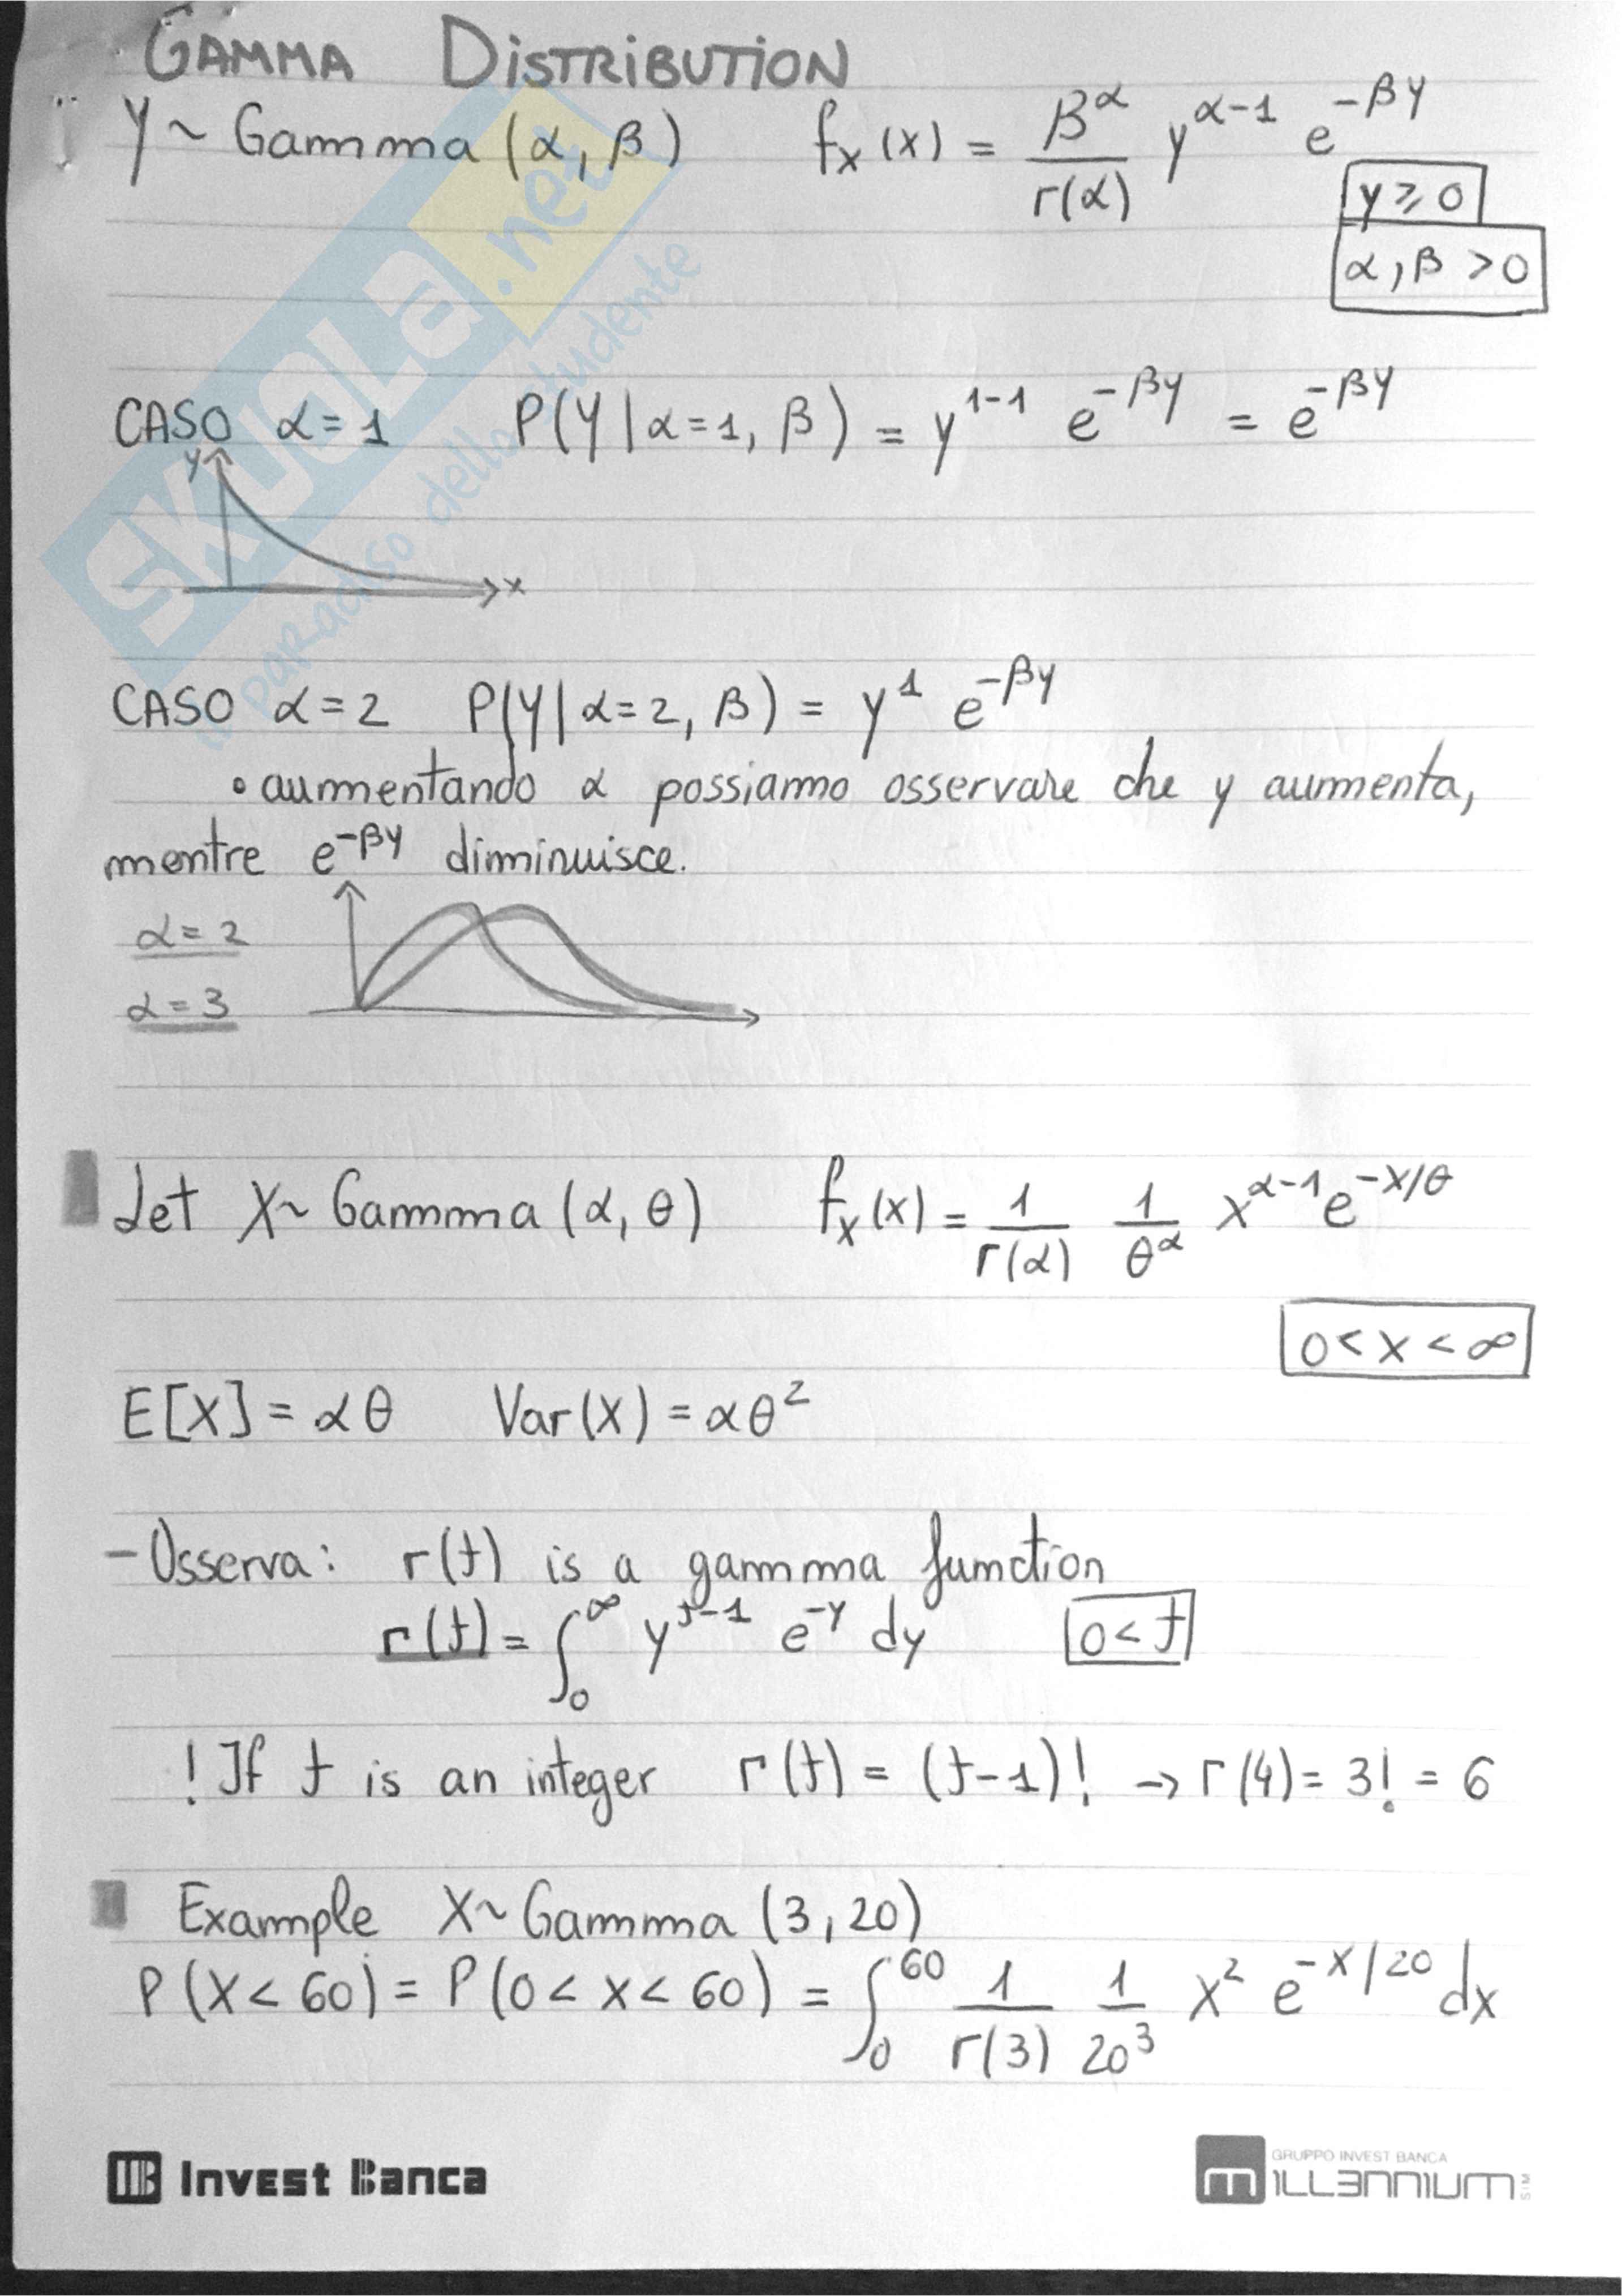 GAMMA DISTRIBUTION
Y ~ Gamma (α, β) fx (x) = β^α / Γ(α) y^(α-1) e^(-βy)
y ⩾ 0
α, β > 0
CASO α = 1 P(Y | α=1, β) = y^(1-1) e^(-βy) = e^(-βy)
y
x
CASO α = 2 P(Y | α=2, β) = y^1 e^(-βy)
• aumentando α possiamo osservare che y aumenta,
mentre e^(-βy) diminuisce.
α = 2
α = 3
Let X ~ Gamma (α, θ) fx (x) = 1/Γ(α) 1/θ^α x^(α-1) e^(-x/θ)
0 < x < ∞
E[X] = αθ Var(X) = αθ²
- Osserva: Γ(t) is a gamma function
Γ(t) = ∫₀^∞ y^(t-1) e^(-y) dy 0 < t
! If t is an integer Γ(t) = (t-1)! → Γ(4) = 3! = 6
Example X ~ Gamma (3, 20)
P(X < 60) = P(0 < x < 60) = ∫₀^60 1/Γ(3) 1/20³ x² e^(-x/20) dx
Invest Banca
GRUPPO INVEST BANCA
MILLENNIUM SIM
SKUOLA.net
il paradiso dello studente